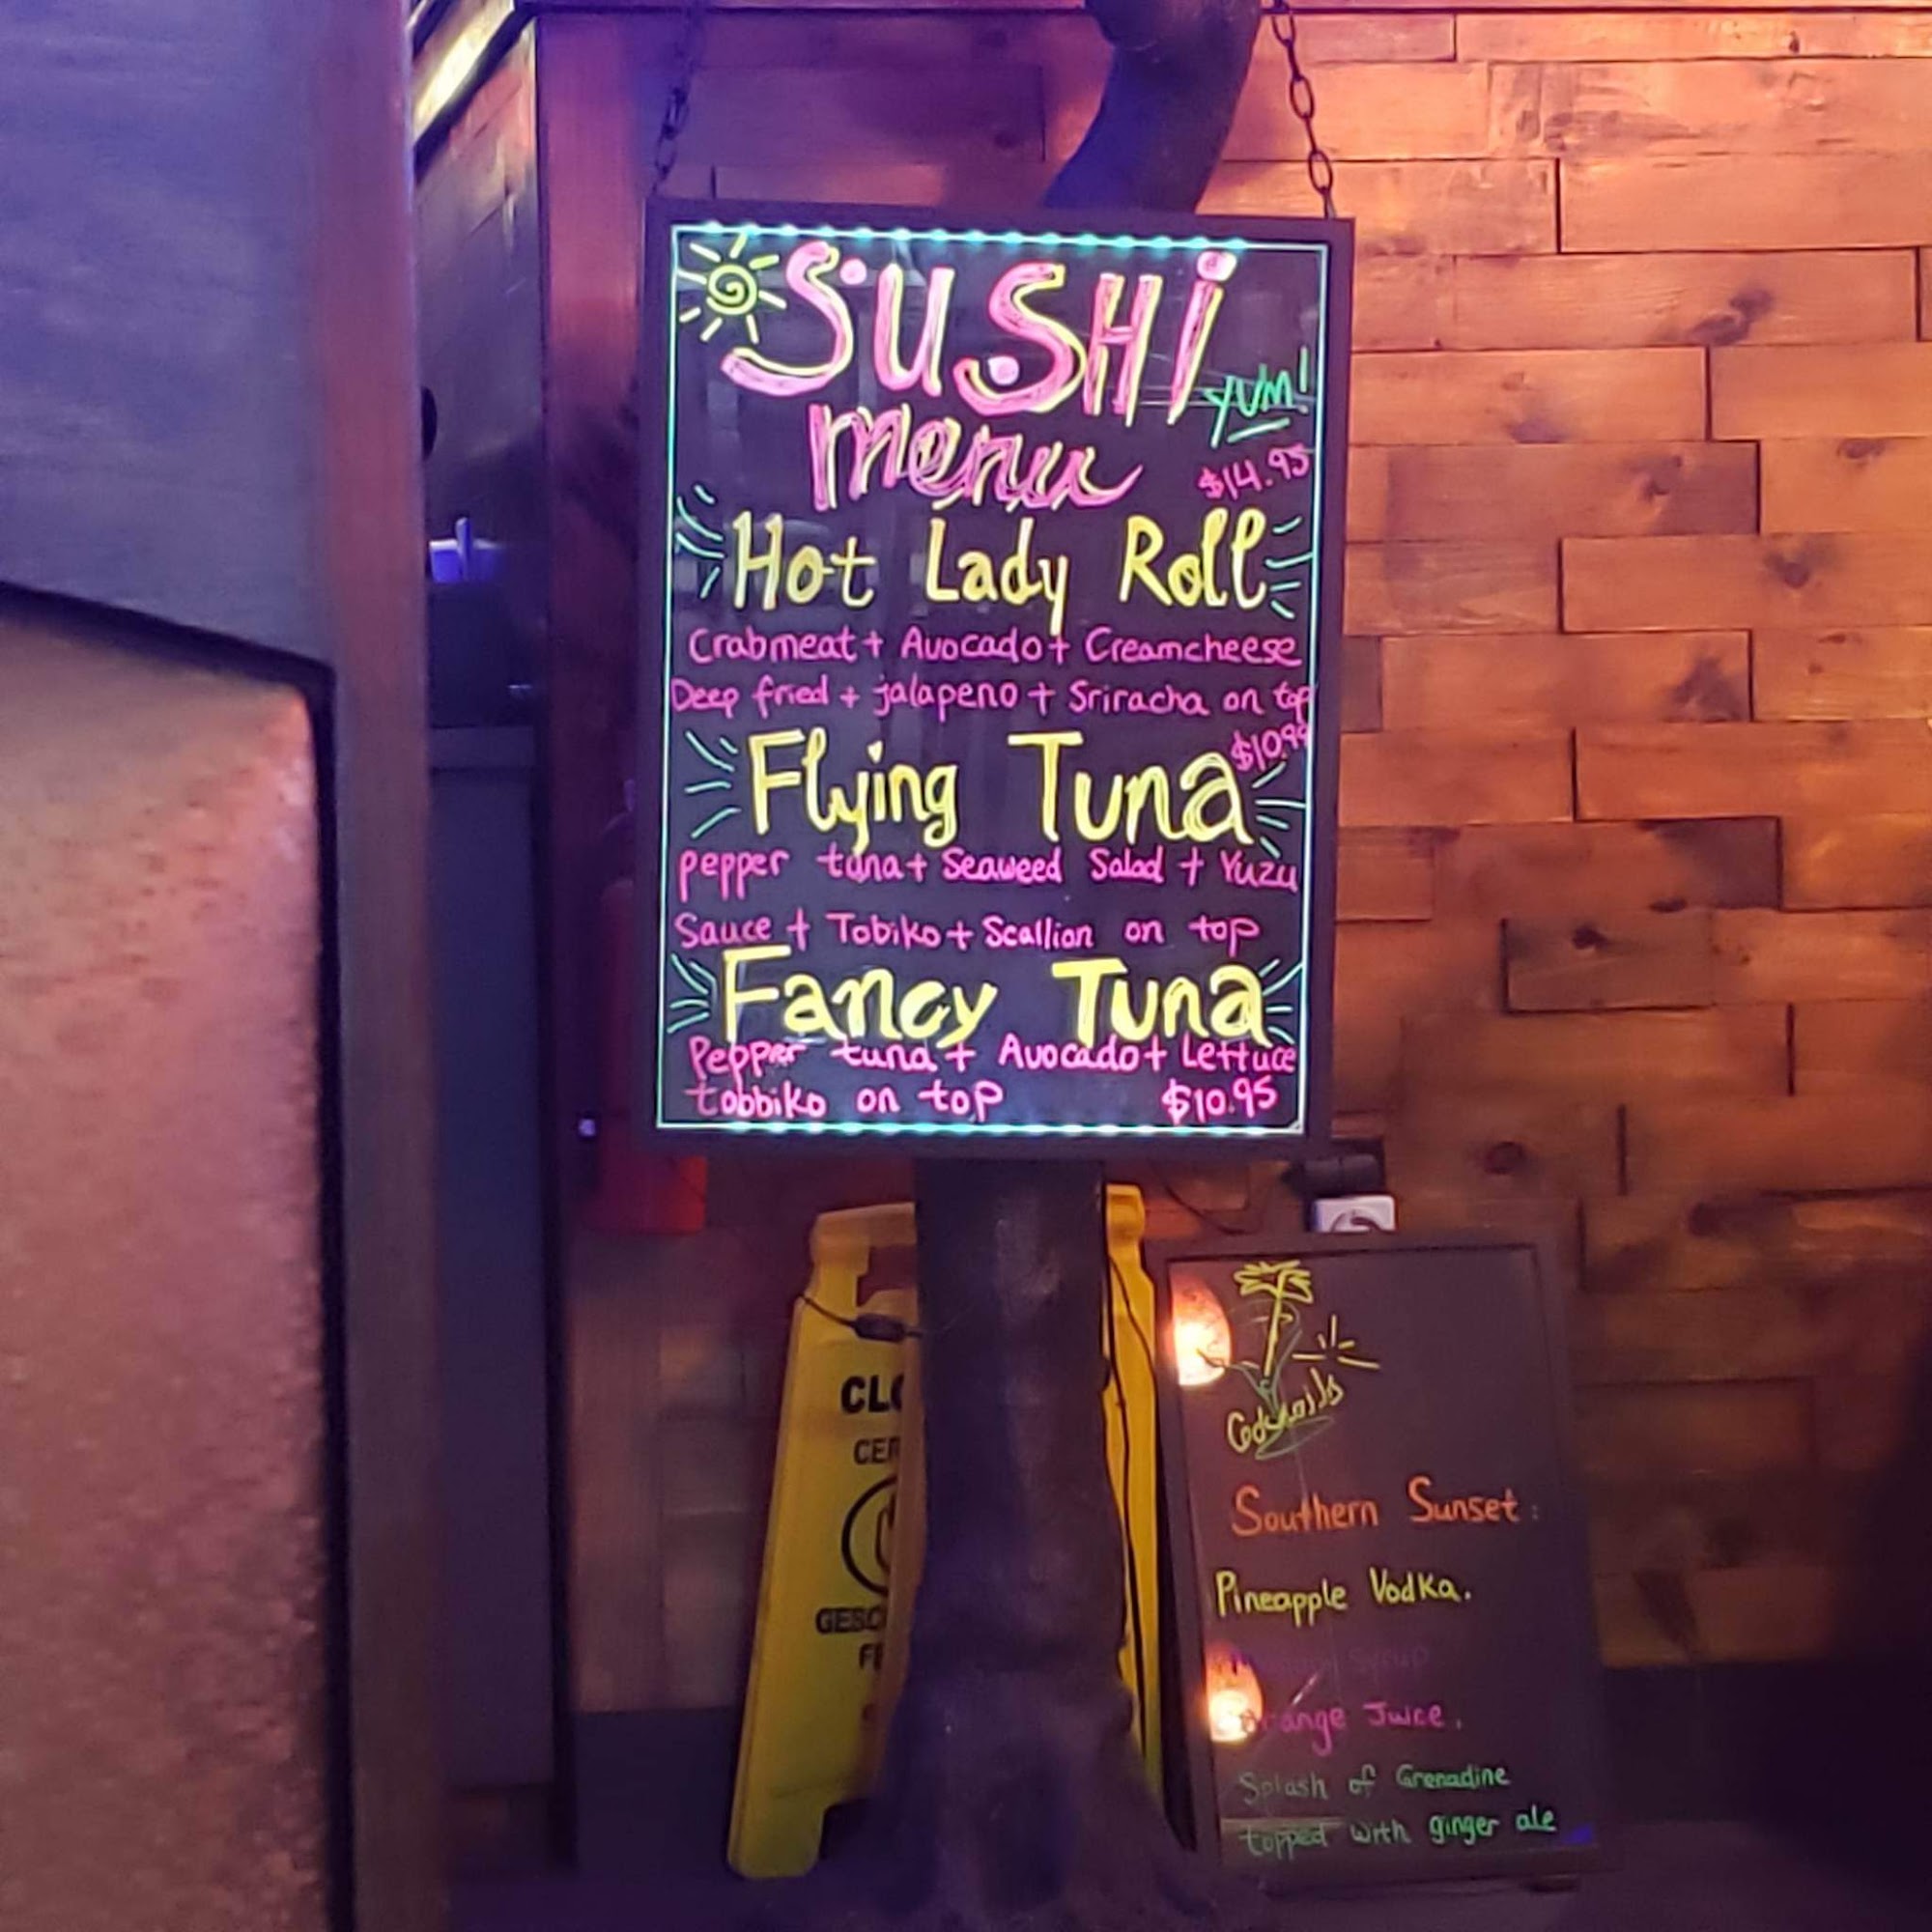 SUSHi
YUM!
menu
$14.95
Hot Lady Roll
Crabmeat + Avocado + Creamcheese
Deep fried + jalapeno + Sriracha on top
$10.99
Flying Tuna
pepper tuna + Seaweed Salad + Yuzu
Sauce + Tobiko + Scallion on top
Fancy Tuna
Pepper tuna + Avocado + Lettuce
tobbiko on top $10.95
CLO
CER
GESC
Southern Sunset:
Pineapple Vodka.
Syrup
Orange Juice.
Splash of Grenadine
topped with ginger ale